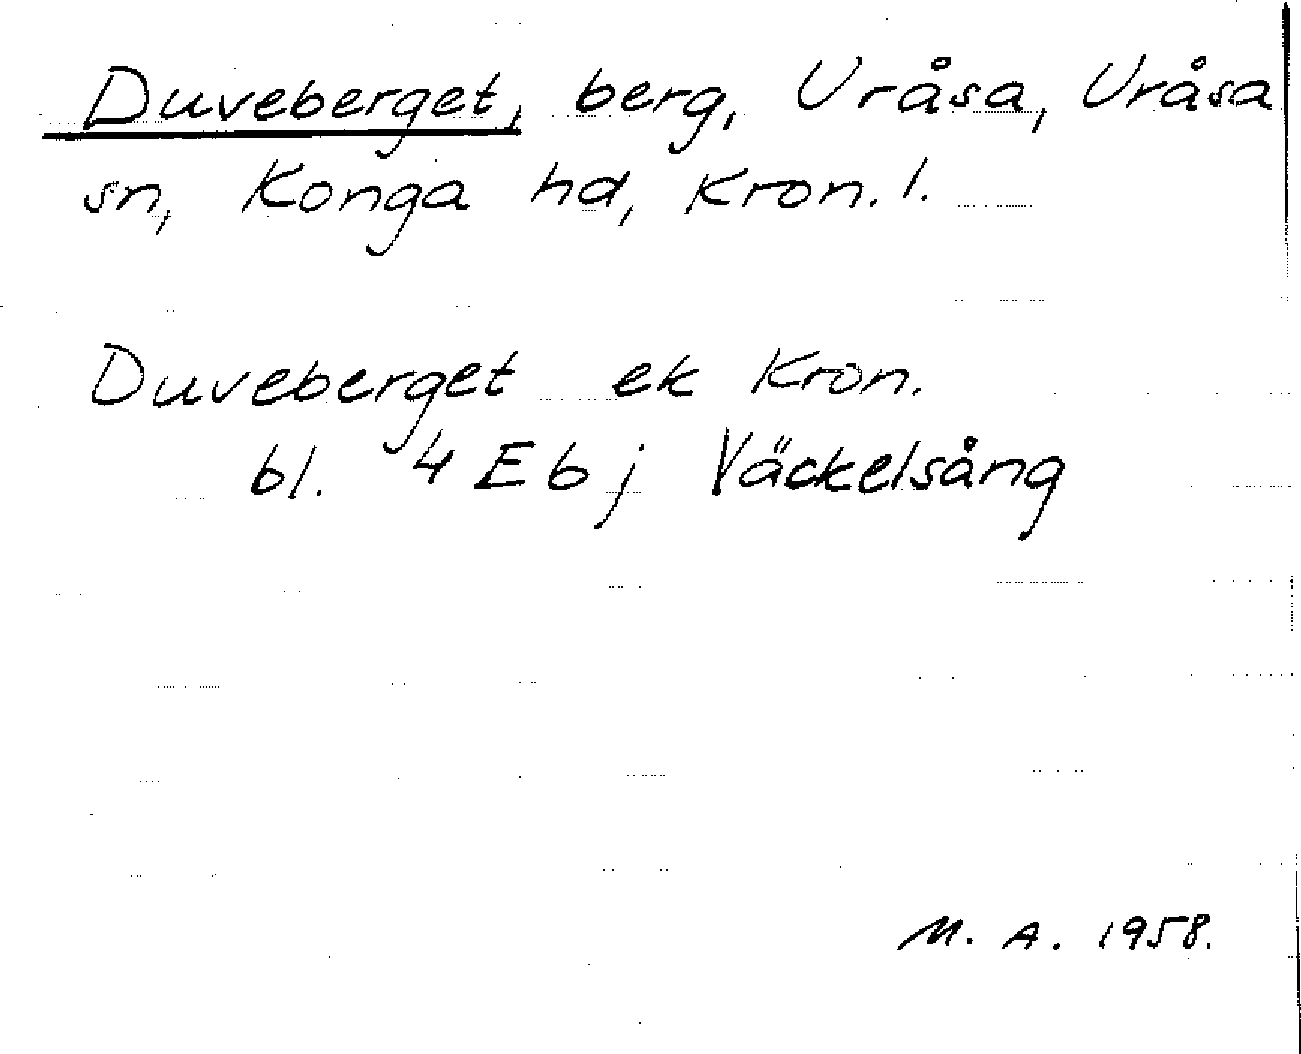 Duveberget, berg, Uråsa, Uråsa
sn, Konga hd, Kron. l.
Duveberget ek Kron.
bl. 4 E b j Väckelsång
M. A. 1958.